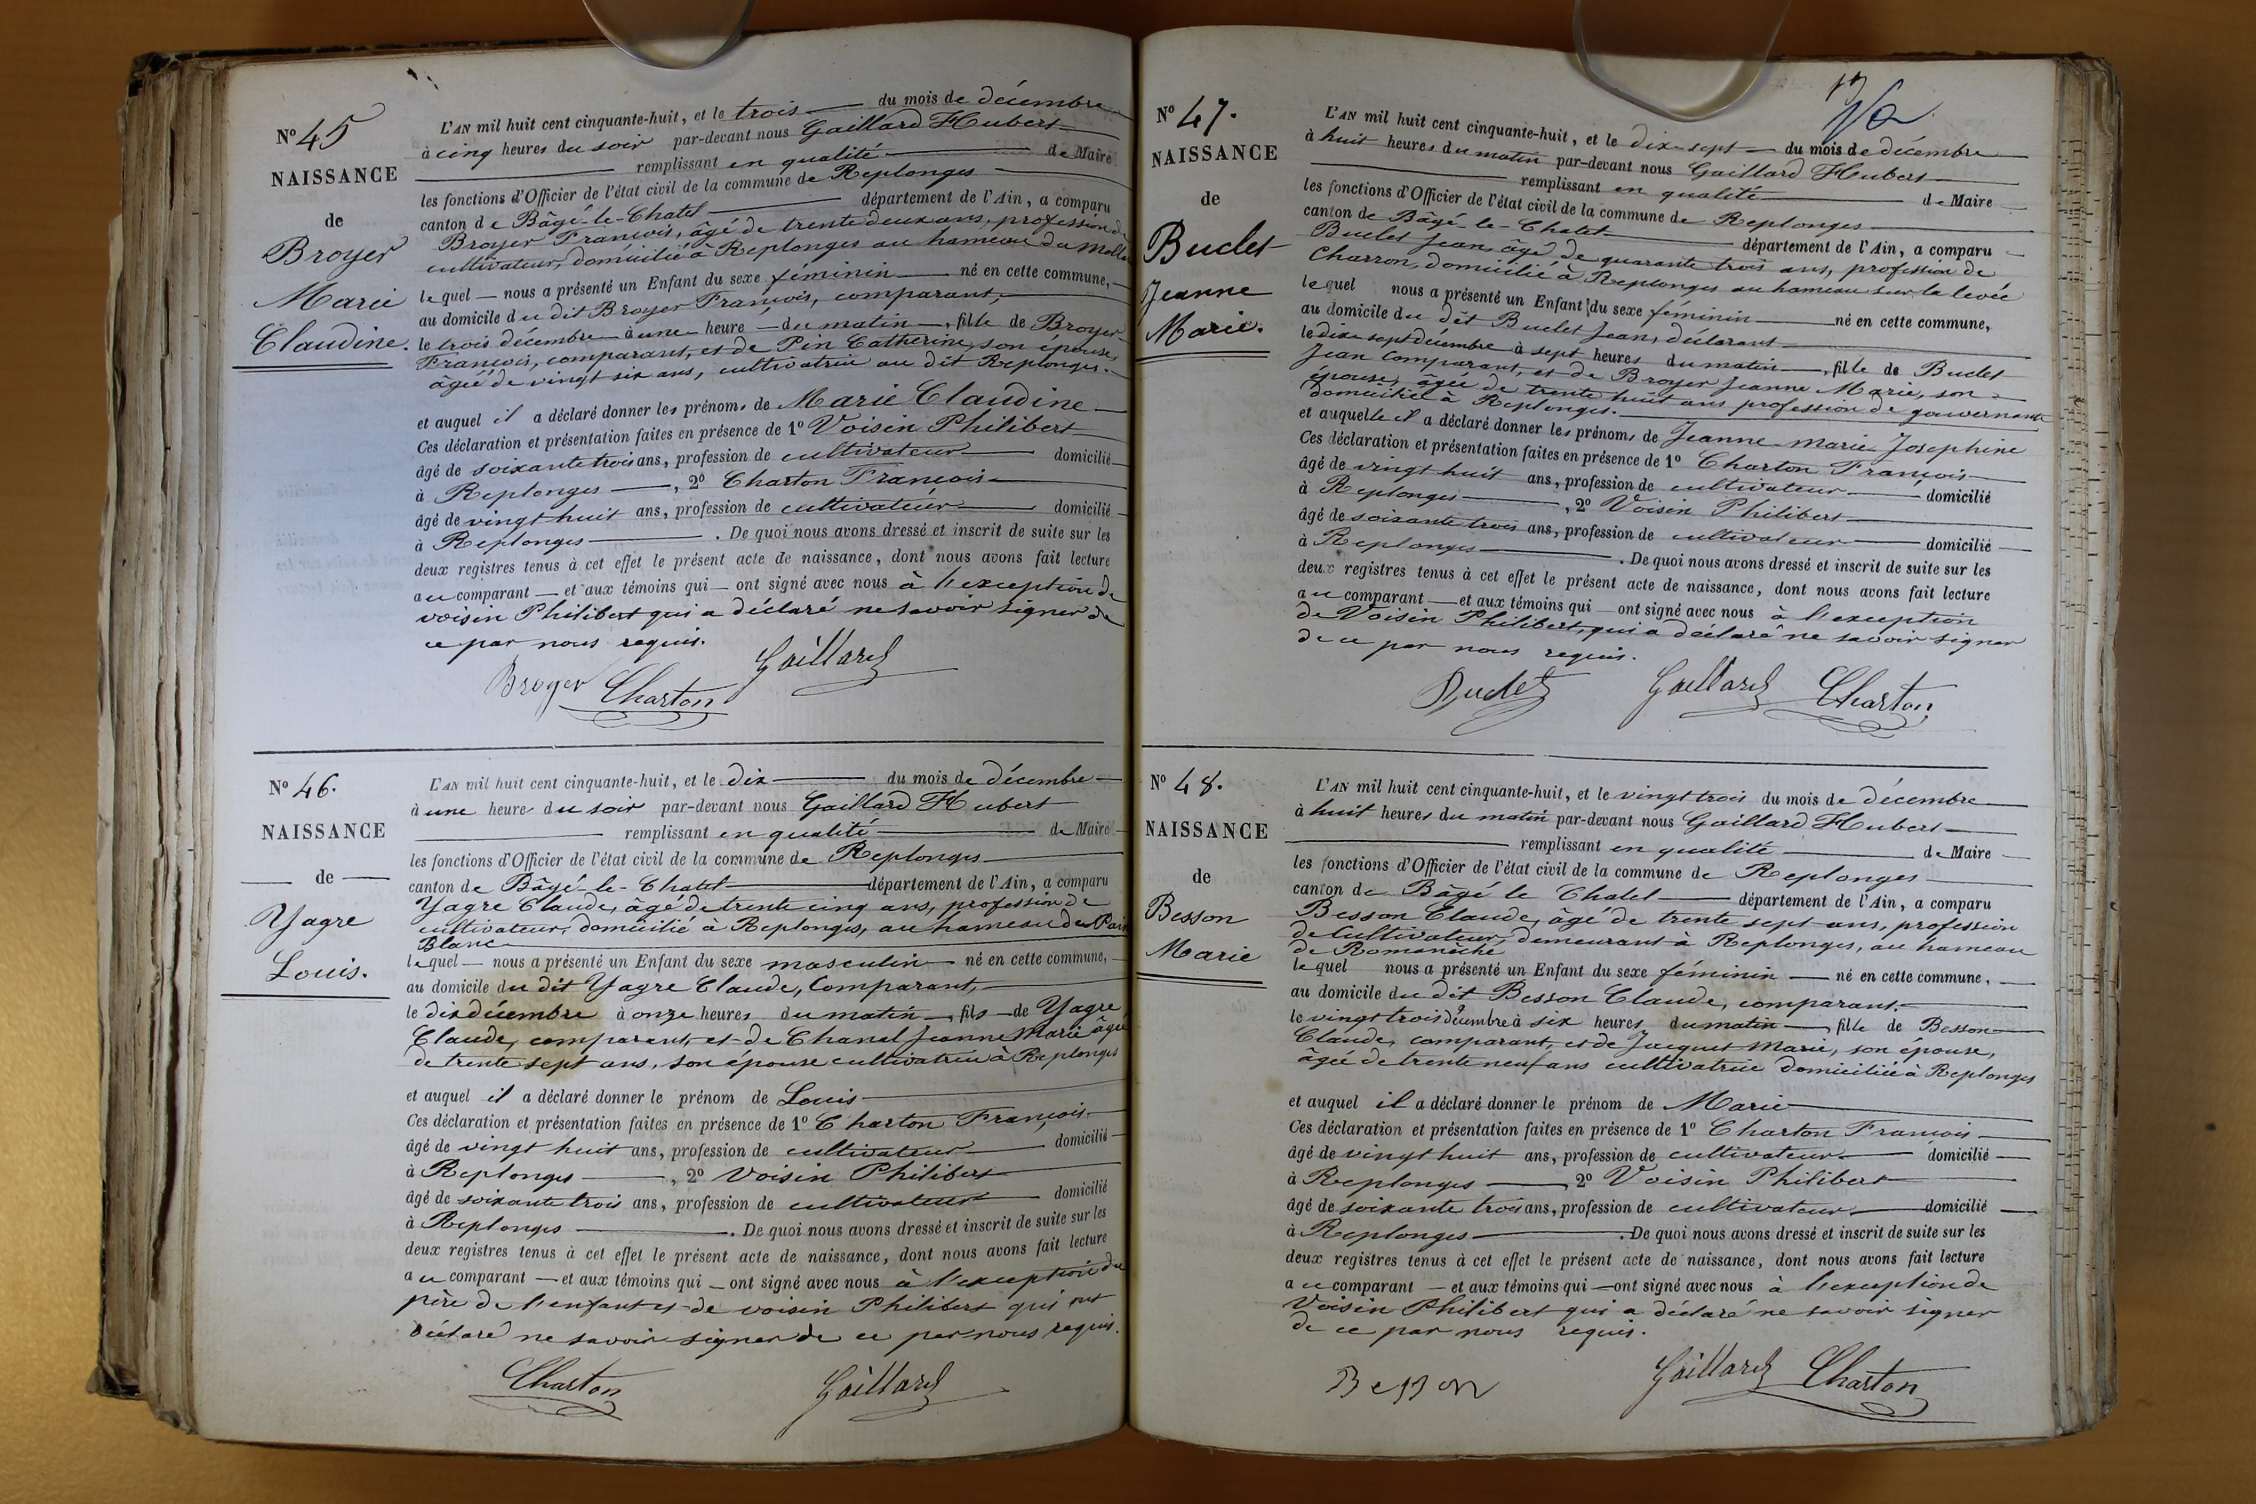 N° 45
NAISSANCE
de
Broyer
Marie
Claudine.
L'AN mil huit cent cinquante-huit, et le trois du mois de décembre
à cinq heures du soir par-devant nous Gaillard Hubert
remplissant en qualité de Maire
les fonctions d'Officier de l'état civil de la commune de Replonges
canton de Bâgé-le-Chatel département de l'Ain, a comparu
Broyer François, âgé de trente deux ans, profession de
cultivateur, domicilié à Replonges au hameau du
lequel nous a présenté un Enfant du sexe féminin né en cette commune,
au domicile du dit Broyer François, comparant,
le trois décembre à une heure du matin, fille de Broyer
François, comparant, et de Pin Catherine, son épouse,
âgée de vingt six ans, cultivatrice au dit Replonges.
et auquel il a déclaré donner les prénoms de Marie Claudine
Ces déclaration et présentation faites en présence de 1° Voisin Philibert
âgé de soixante trois ans, profession de cultivateur domicilié
à Replonges, 2° Charton François
âgé de vingt huit ans, profession de cultivateur domicilié
à Replonges. De quoi nous avons dressé et inscrit de suite sur les
deux registres tenus à cet effet le présent acte de naissance, dont nous avons fait lecture
au comparant et aux témoins qui ont signé avec nous à l'exception de
voisin Philibert qui a déclaré ne savoir signer de
ce par nous requis.
Broyer Charton Gaillard
N° 46.
NAISSANCE
de
Yagre
Louis.
L'AN mil huit cent cinquante-huit, et le dix du mois de décembre
à une heure du soir par-devant nous Gaillard Hubert
remplissant en qualité de Maire
les fonctions d'Officier de l'état civil de la commune de Replonges
canton de Bâgé-le-Chatel département de l'Ain, a comparu
Yagre Claude, âgé de trente cinq ans, profession de
cultivateur, domicilié à Replonges, au hameau du
Blanc
lequel nous a présenté un Enfant du sexe masculin né en cette commune,
au domicile du dit Yagre Claude, Comparant,
le dix décembre à onze heures du matin, fils de Yagre
Claude, comparant, et de Chanel Jeanne Marie âgée
de trente sept ans, son épouse cultivatrice à Replonges
et auquel il a déclaré donner le prénom de Louis
Ces déclaration et présentation faites en présence de 1° Charton François
âgé de vingt huit ans, profession de cultivateur domicilié
à Replonges, 2° Voisin Philibert
âgé de soixante trois ans, profession de cultivateur domicilié
à Replonges. De quoi nous avons dressé et inscrit de suite sur les
deux registres tenus à cet effet le présent acte de naissance, dont nous avons fait lecture
au comparant et aux témoins qui ont signé avec nous à l'exception du
père de l'enfant et de voisin Philibert qui ont
déclaré ne savoir signer de ce par nous requis.
Charton Gaillard
N° 47.
NAISSANCE
de
Buclet
Jeanne
Marie.
L'AN mil huit cent cinquante-huit, et le dix-sept du mois de décembre
à huit heures du matin par-devant nous Gaillard Hubert
remplissant en qualité de Maire
les fonctions d'Officier de l'état civil de la commune de Replonges
canton de Bâgé-le-Chatel département de l'Ain, a comparu
Buclet Jean, âgé de quarante trois ans, profession de
Charron, domicilié à Replonges au hameau sur la levée
lequel nous a présenté un Enfant du sexe féminin né en cette commune,
au domicile du dit Buclet Jean, déclarant
le dix-sept décembre à sept heures du matin, fille de Buclet
Jean Comparant, et de Broyer Jeanne Marie, son
épouse, âgée de trente huit ans profession de gouvernante
domicilié à Replonges.
et auquelle il a déclaré donner les prénoms de Jeanne-Marie Josephine
Ces déclaration et présentation faites en présence de 1° Charton François
âgé de vingt huit ans, profession de cultivateur domicilié
à Replonges, 2° Voisin Philibert
âgé de soixante trois ans, profession de cultivateur domicilié
à Replonges. De quoi nous avons dressé et inscrit de suite sur les
deux registres tenus à cet effet le présent acte de naissance, dont nous avons fait lecture
au comparant et aux témoins qui ont signé avec nous à l'exception
de Voisin Philibert, qui a déclaré ne savoir signer
de ce par nous requis.
Buclet Gaillard Charton
N° 48.
NAISSANCE
de
Besson
Marie
L'AN mil huit cent cinquante-huit, et le vingt trois du mois de décembre
à huit heures du matin par-devant nous Gaillard Hubert
remplissant en qualité de Maire
les fonctions d'Officier de l'état civil de la commune de Replonges
canton de Bâgé le Chatel département de l'Ain, a comparu
Besson Claude, âgé de trente sept ans, profession
de Cultivateur, demeurant à Replonges, au hameau
de Romanèche
lequel nous a présenté un Enfant du sexe féminin né en cette commune,
au domicile du dit Besson Claude, comparant.
le vingt trois décembre à six heures du matin, fille de Besson
Claude, comparant, et de Jacquet Marie, son épouse,
âgée de trente neuf ans cultivatrice domiciliée à Replonges
et auquel il a déclaré donner le prénom de Marie
Ces déclaration et présentation faites en présence de 1° Charton François
âgé de vingt huit ans, profession de cultivateur domicilié
à Replonges, 2° Voisin Philibert
âgé de soixante trois ans, profession de cultivateur domicilié
à Replonges. De quoi nous avons dressé et inscrit de suite sur les
deux registres tenus à cet effet le présent acte de naissance, dont nous avons fait lecture
au comparant et aux témoins qui ont signé avec nous à l'exception de
Voisin Philibert qui a déclaré ne savoir signer
de ce par nous requis.
Besson Gaillard Charton